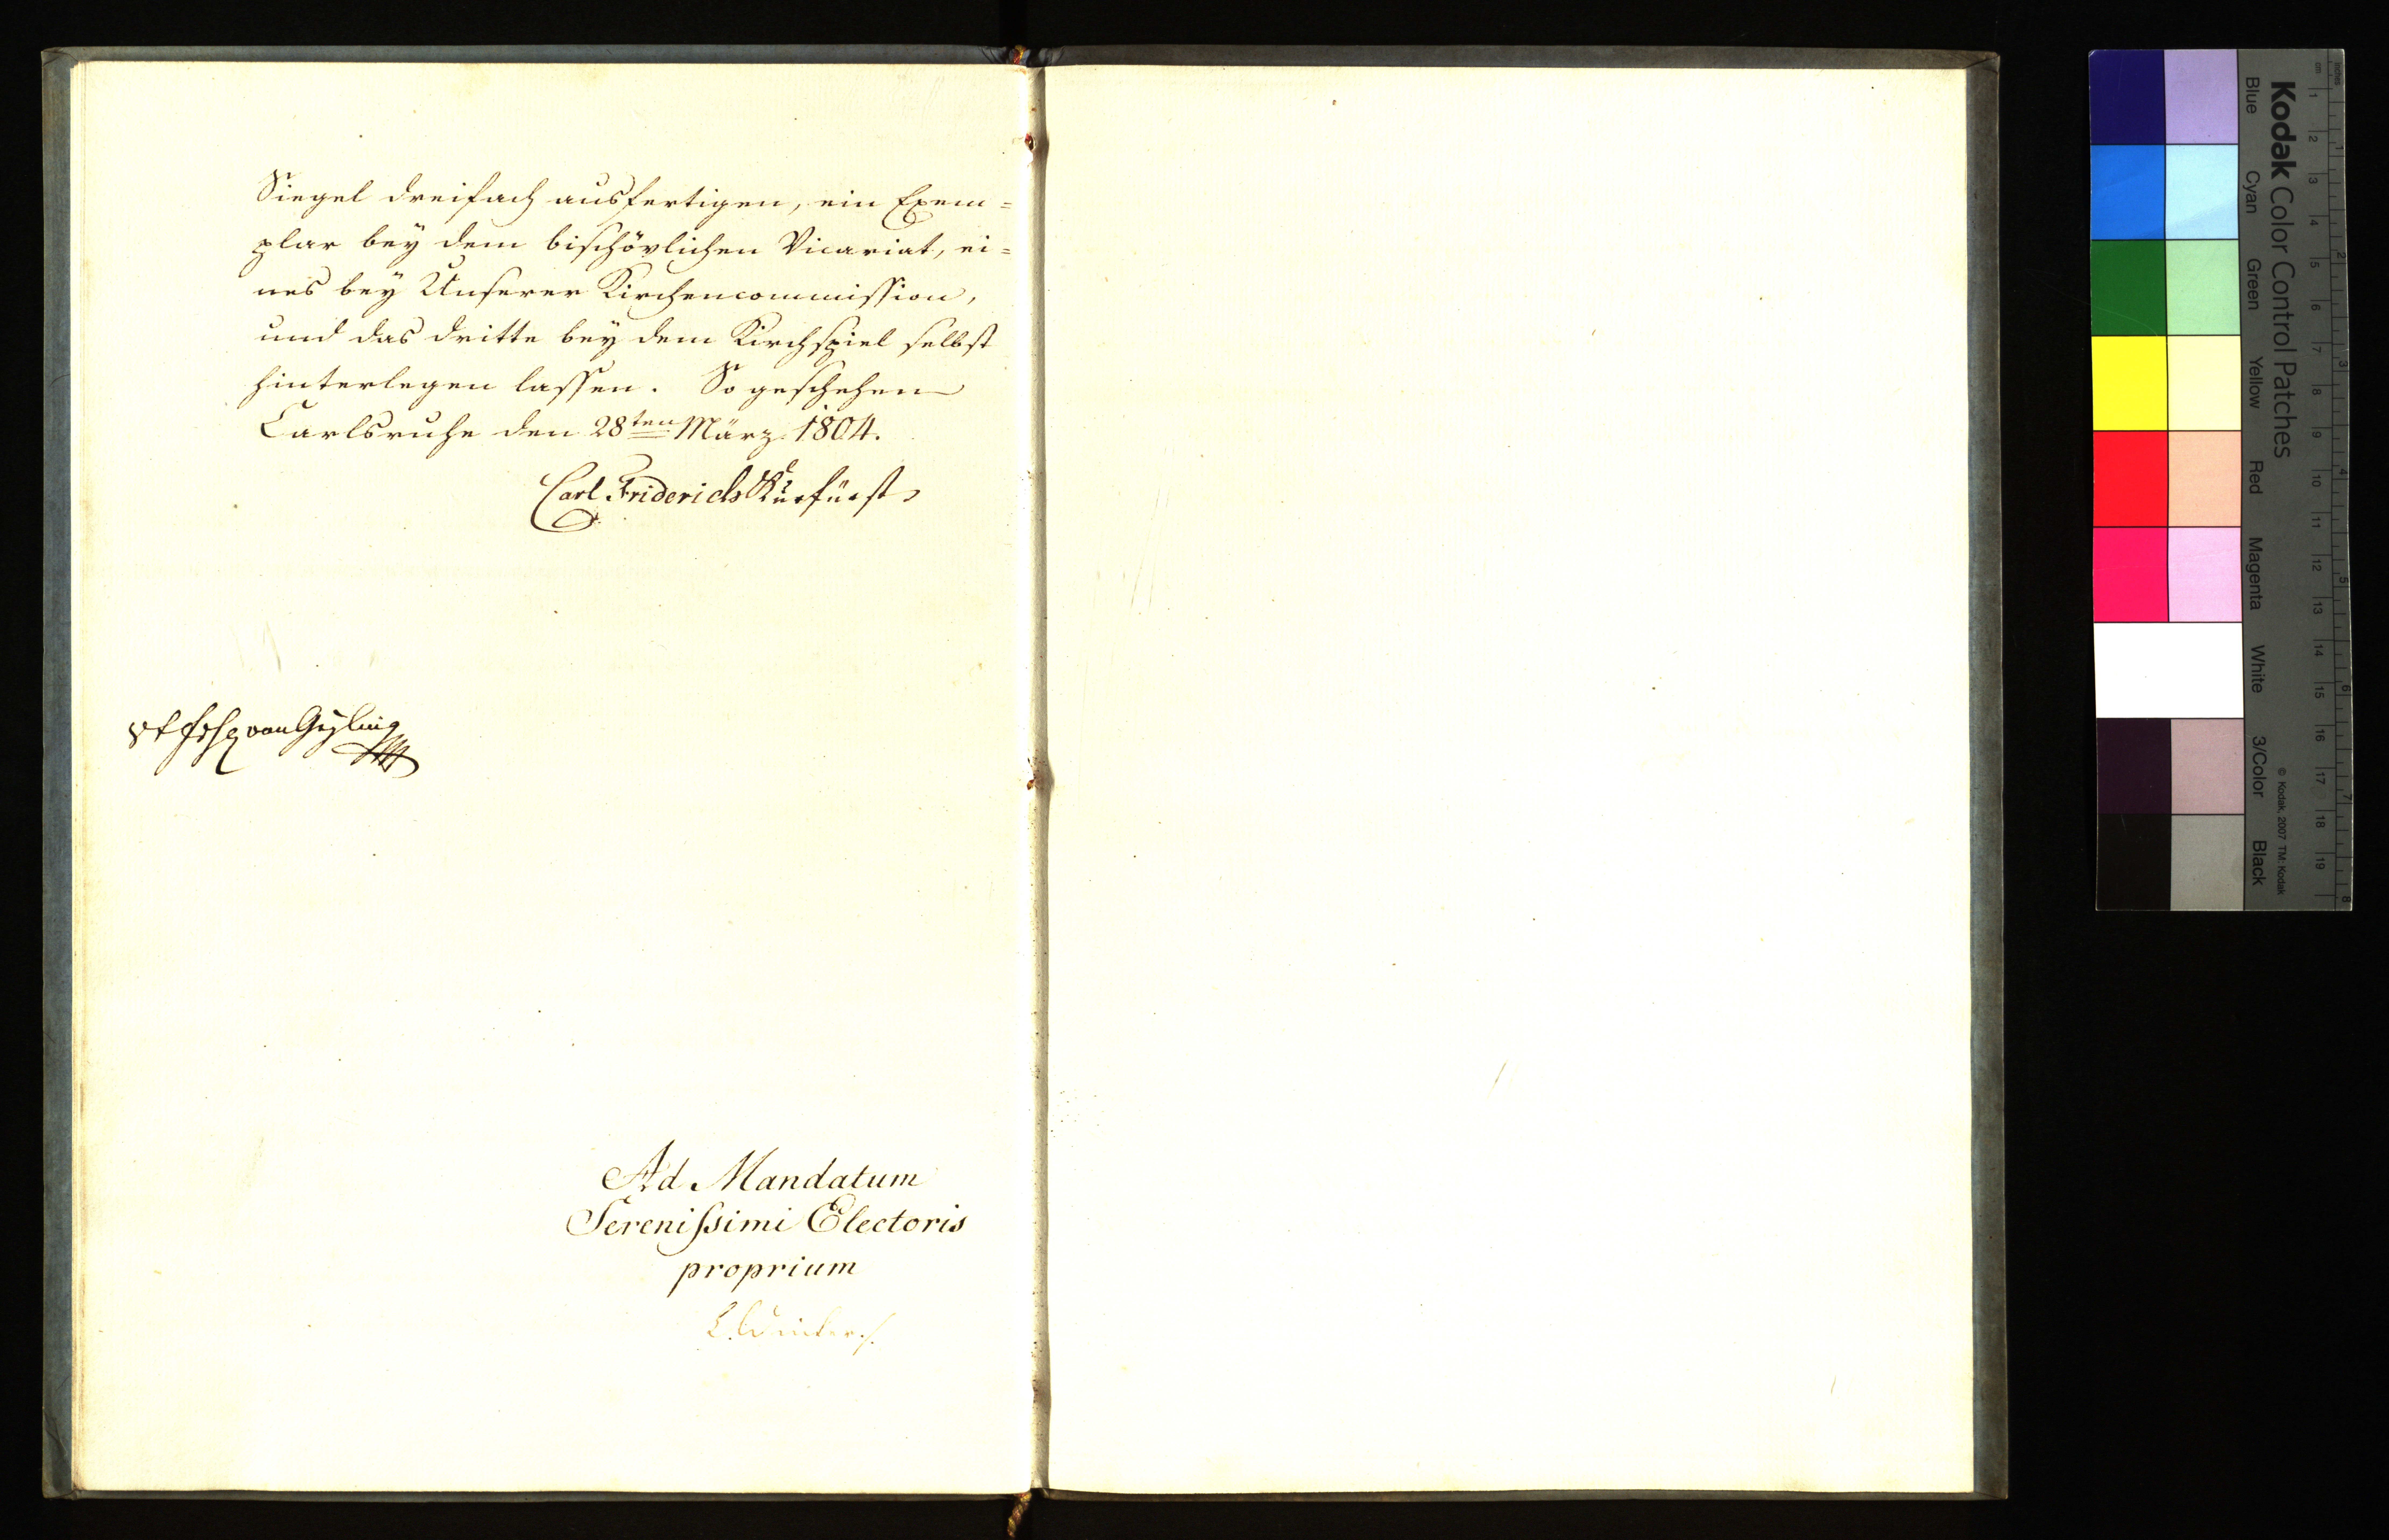 Siegel dreifach ausfertigen, ein Exem=
plar bey dem bischövlichen Vicariat, ei=
nes bey Unserer Kirchencommission,
und das dritte bey dem Kirchspiel selbst
hinterlegen lassen. So geschehen
Carlsruhe den 28ten März 1804.
Carl Friderich Kurfürst
von Gayling
Ad Mandatum
Serenissimi Electoris
proprium
Kodak Color Control Patches
Blue Cyan Green Yellow Red Magenta White 3/Color Black
© Kodak, 2007 TM: Kodak
cm 1 2 3 4 5 6 7 8 9 10 11 12 13 14 15 16 17 18 19
inches 1 2 3 4 5 6 7 8